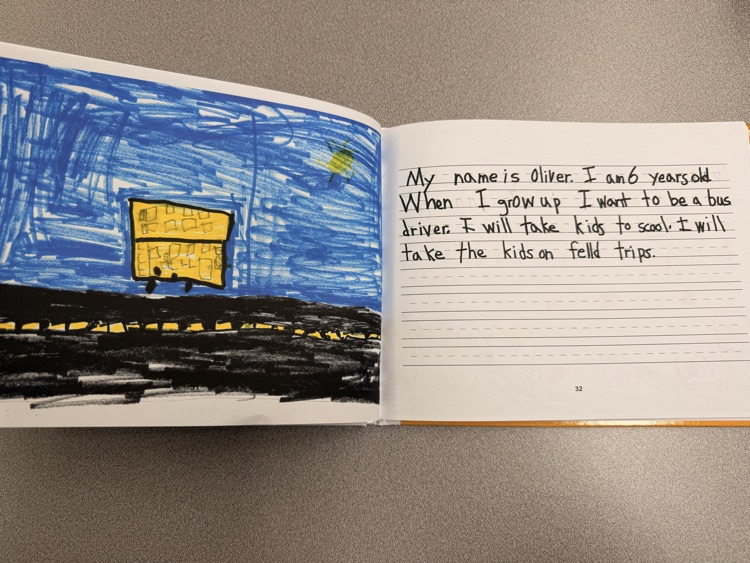 My name is Oliver. I am 6 years old
When I grow up I want to be a bus
driver. I will take kids to scool. I will
take the kids on felld trips.
32